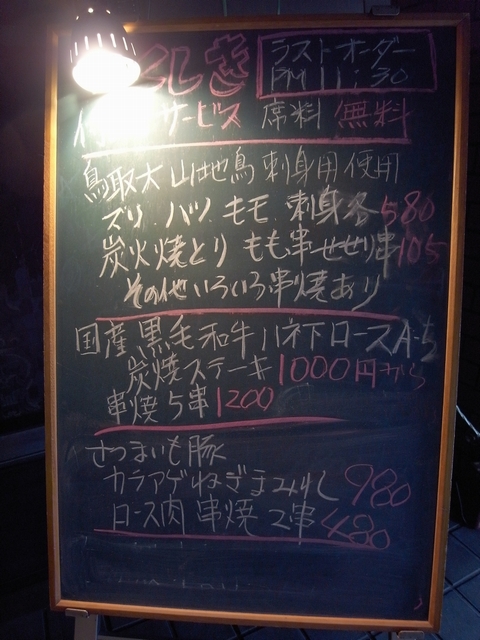 くしき
ラストオーダー
PM 11:30
サービス 席料 無料
鳥取大山地鳥 刺身用使用
ズリ、ハツ、モモ 刺身各580
炭火焼とり もも串 せせり串105
その他いろいろ串焼あり
国産黒毛和牛ハネ下ロースA-5
炭焼ステーキ1000円から
串焼5串1200
さつまいも豚
カラアゲねぎまみれ980
ロース肉 串焼 2串420